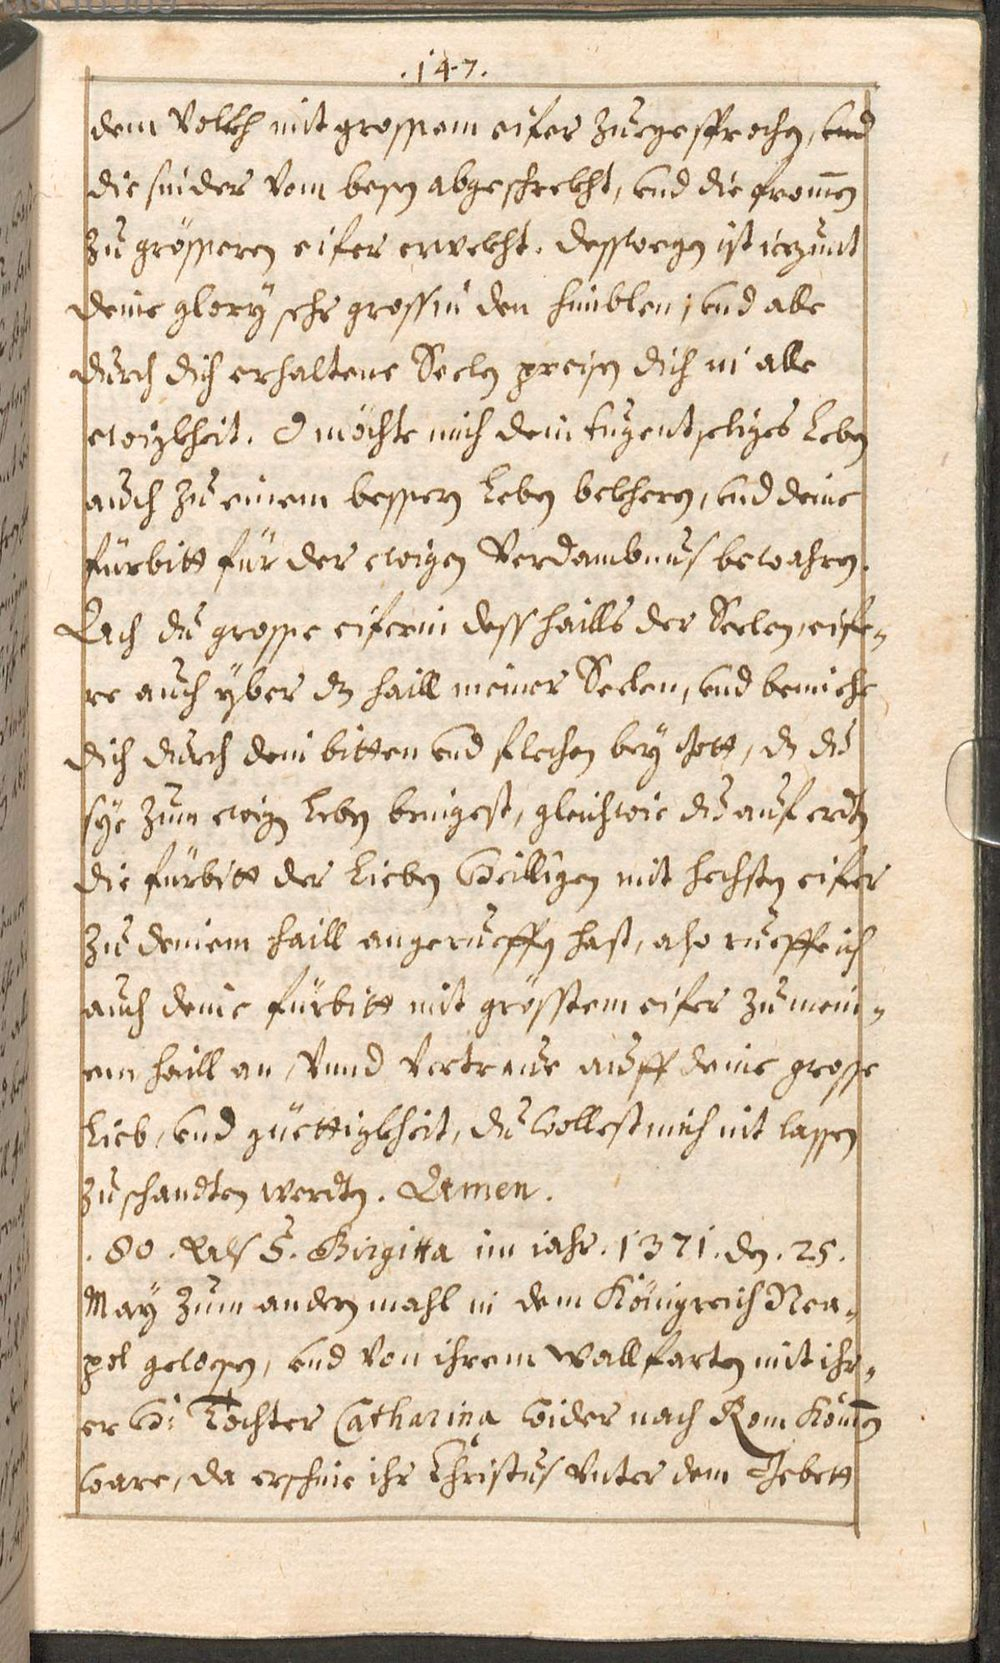 .147.
dem Volkh mit grossem eifer zuegesprochen, und
die sinder vom besen abgeschrekht, und die fromen
zu grösseren eifer erwekht. desswegen ist iezunt
deine glory sehr gross in den himblen, und alle
durch dich erhaltene Seelen preisen dich in alle
ewigkheit. O möchte mich dein tugentseliges Leben
auch zu einem bessern Leben bekheren, und deine
fürbitt für der ewigen Verdambnus bewahren.
Ach du grosse eiferin dess haills der Seelen, eife-
re auch yber dz haill meiner Seelen, und bemiehe
dich durch dein bitten und flechen bey Gott, dz du
sye zum ewigen Leben bringest, gleichwie du auf erdten
die fürbitt der Lieben Heilligen mit hechsten eifer
zu deinem haill angerueffen hast, also rueffe ich
auch deine fürbitt mit grösstem eifer zu mein-
em haill an, Vnnd Vertraue auff deine grosse
Lieb, und güettigkheit, du wollest mich nit lassen
zu schandten werdten. Amen.
.80. Als S. Birgitta im iahr .1371. den .25.
May zum andern mahl in dem Königreich Nea-
pel gewesen, und von ihrem wallfarten mit ihr-
er H: Tochter Catharina wider nach Rom komen
ware, da erschine ihr Christus vnter dem Gebett